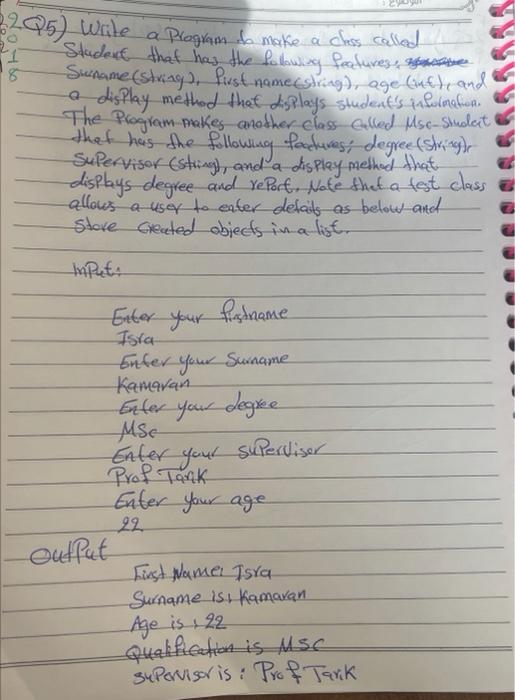 2018
Q5) Write a Program to make a class called
Student that has the following features;
Surname (string), first name (string), age (int), and
a display method that displays student's information.
The Program makes another class called Msc-Student
that has the following features; degree (string),
Supervisor (string), and a display method that
displays degree and report. Note that a test class
allows a user to enter details as below and
Store created objects in a list.
Input:
Enter your firstname
Isra
Enter your Surname
Kamaran
Enter your degree
MSc
Enter your supervisor
Prof Tarik
Enter your age
22
Output
First Name: Isra
Surname is: Kamaran
Age is: 22
Qualification is MSC
supervisor is: Prof Tarik